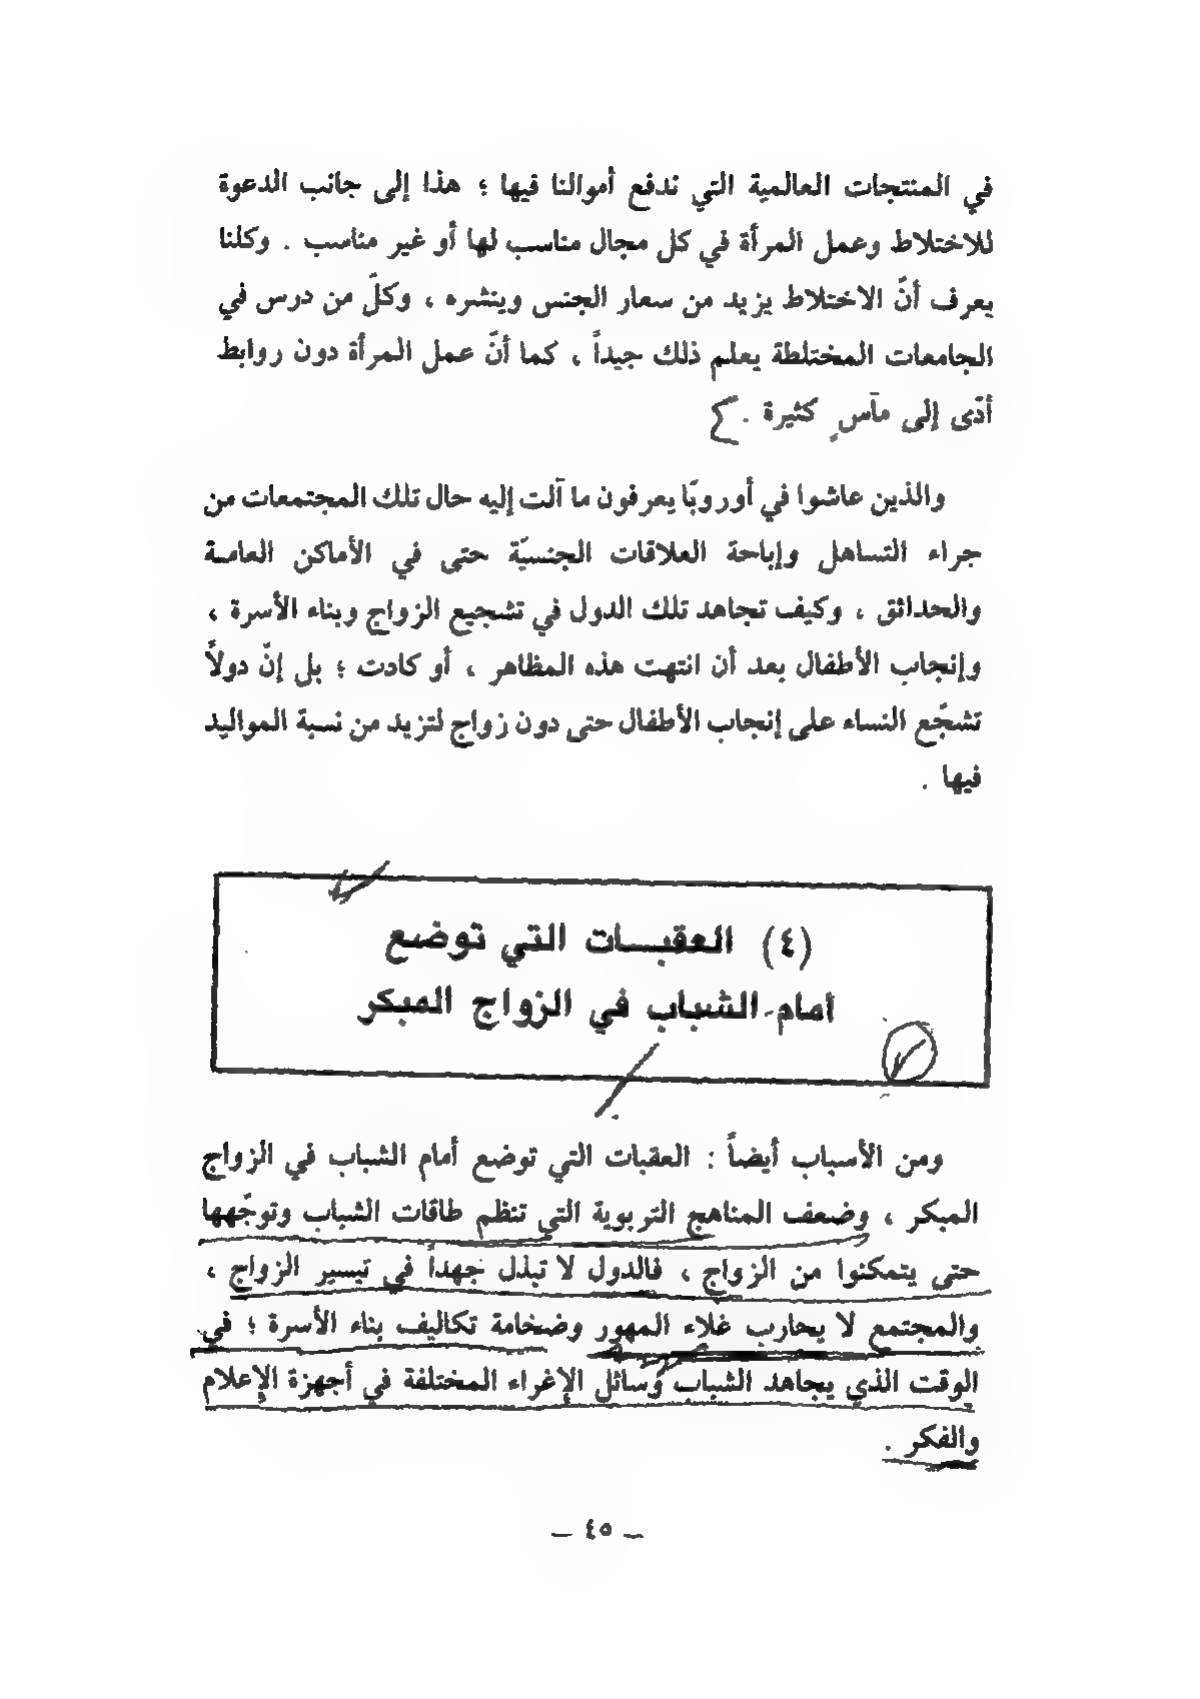 في المنتجات العالمية التي ندفع أموالنا فيها ؛ هذا إلى جانب الدعوة
للاختلاط وعمل المرأة في كل مجال مناسب لها أو غير مناسب . وكلنا
يعرف أنّ الاختلاط يزيد من سعار الجنس وينشره ، وكلّ من درس في
الجامعات المختلطة يعلم ذلك جيداً ، كما أنّ عمل المرأة دون روابط
أدّى إلى مآسٍ كثيرة .
والذين عاشوا في أوروبّا يعرفون ما آلت إليه حال تلك المجتمعات من
جراء التساهل وإباحة العلاقات الجنسيّة حتى في الأماكن العامة
والحدائق ، وكيف تجاهد تلك الدول في تشجيع الزواج وبناء الأسرة ،
وإنجاب الأطفال بعد أن انتهت هذه المظاهر ، أو كادت ؛ بل إنّ دولاً
تشجّع النساء على إنجاب الأطفال حتى دون زواج لتزيد من نسبة المواليد
فيها .
(٤) العقبــات التي توضع
أمام الشباب في الزواج المبكر
ومن الأسباب أيضاً : العقبات التي توضع أمام الشباب في الزواج
المبكر ، وضعف المناهج التربوية التي تنظم طاقات الشباب وتوجّهها
حتى يتمكنوا من الزواج ، فالدول لا تبذل جهداً في تيسير الزواج ،
والمجتمع لا يحارب غلاء المهور وضخامة تكاليف بناء الأسرة ؛ في
الوقت الذي يجاهد الشباب وسائل الإغراء المختلفة في أجهزة الإعلام
والفكر .
— ٤٥ —